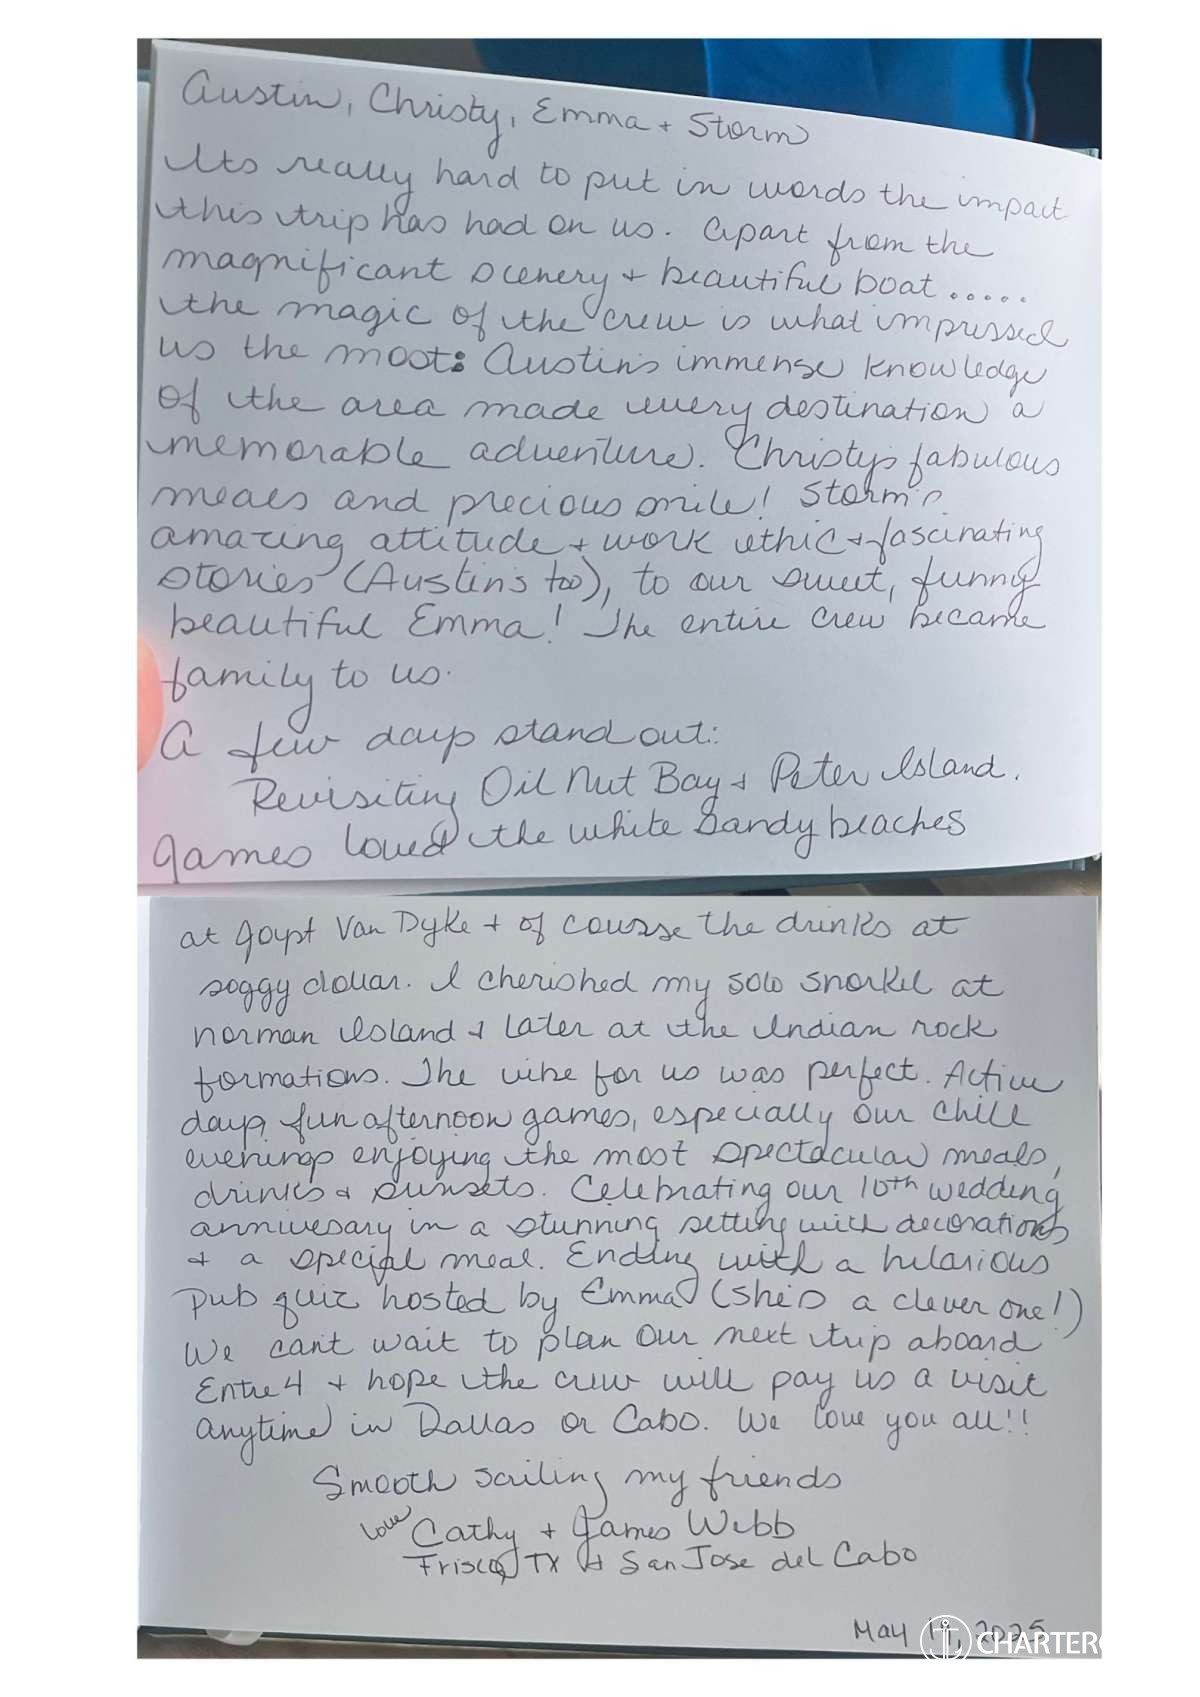 Austin, Christy, Emma + Storm
Its really hard to put in words the impact
this trip has had on us. Apart from the
magnificant scenery + beautiful boat.....
the magic of the crew is what impressed
us the most: Austin's immense knowledge
of the area made every destination a
memorable adventure. Christy's fabulous
meals and precious smile! Storm's
amazing attitude + work ethic + fascinating
stories (Austin's too), to our sweet, funny
beautiful Emma! The entire crew became
family to us.
A few days stand out:
Revisiting Oil Nut Bay + Peter Island.
James loved the white sandy beaches
at Van Dyke + of course the drinks at
soggy dollar. I cherished my solo snorkel at
norman Island + later at the Indian rock
formations. The vibe for us was perfect. Active
days, fun afternoon games, especially our chill
evenings enjoying the most spectacular meals,
drinks + sunsets. Celebrating our 10th wedding
annivesary in a stunning setting with decorations
+ a special meal. Ending with a hilarious
pub quiz hosted by Emma (she's a clever one!)
We can't wait to plan our next trip aboard
Entre 4 + hope the crew will pay us a visit
anytime in Dallas or Cabo. We love you all!!
Smooth sailing my friends
love Cathy + James Webb
Frisco, TX + San Jose del Cabo
May 2025
CHARTER